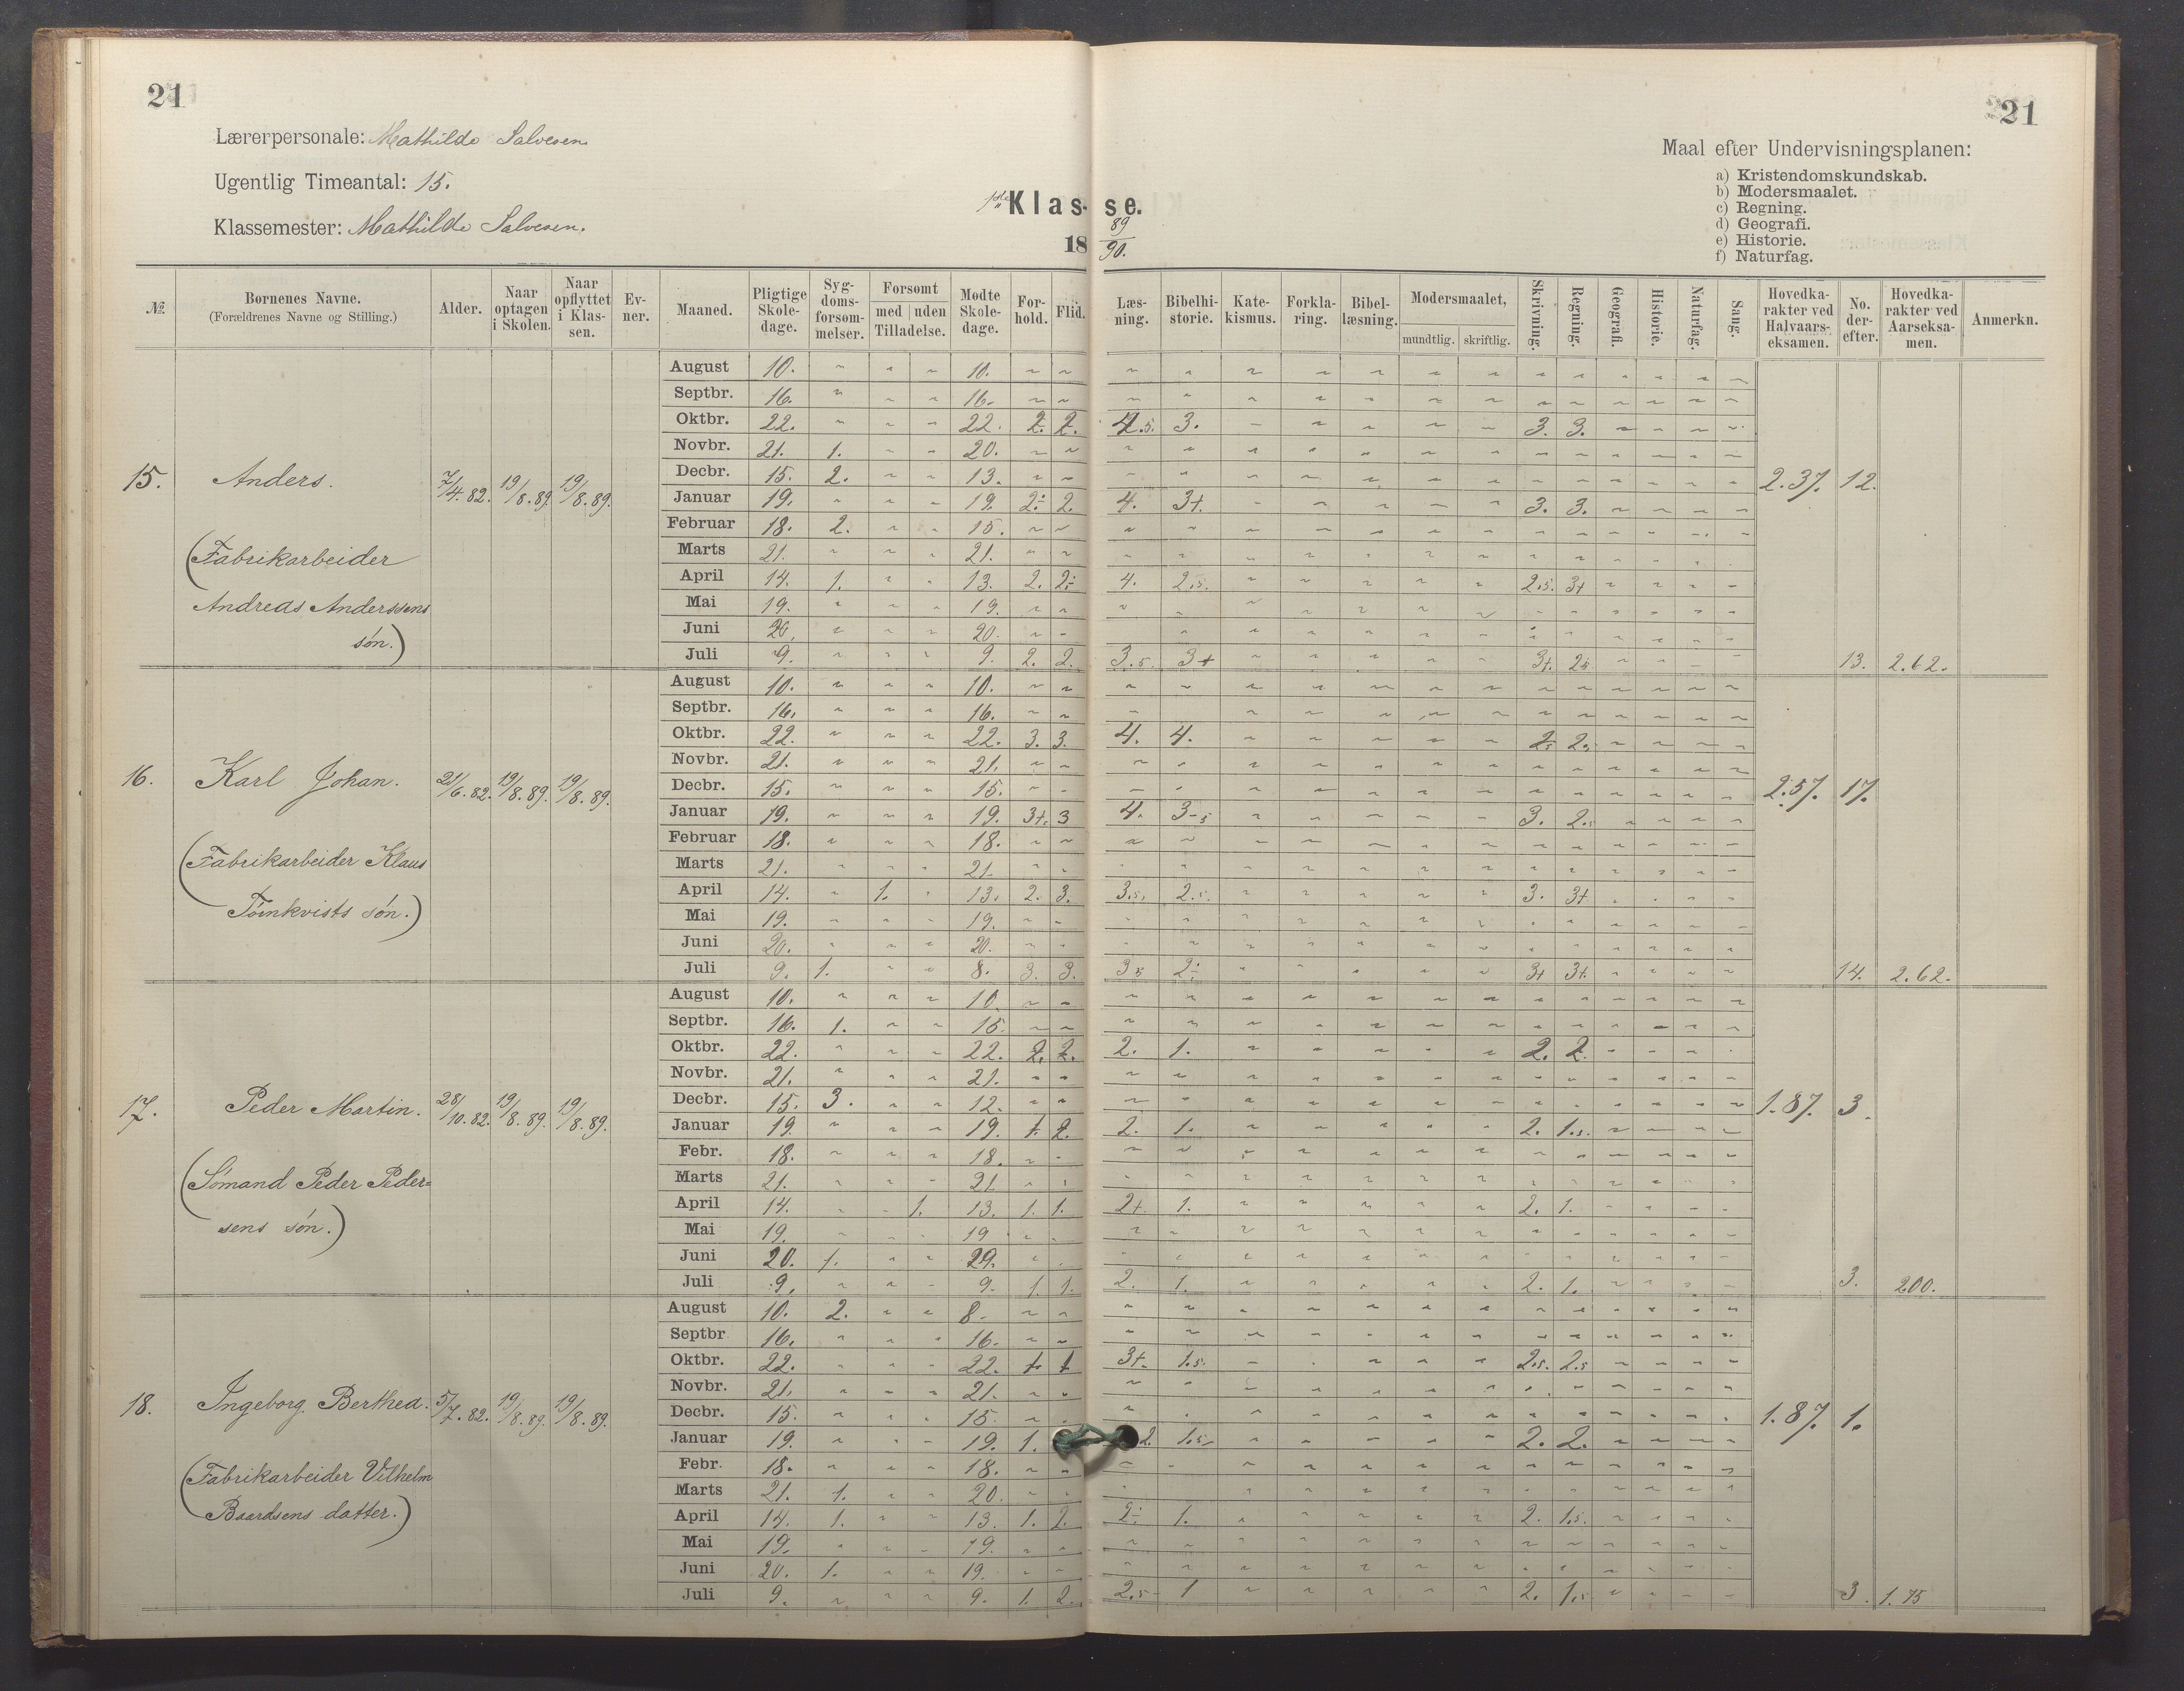 21
21
Lærerpersonale: Mathilde Salvesen
Ugentlig Timeantal: 15.
Klassemester: Mathilde Salvesen.
1ste Klas- se.
18 89/90.
Maal efter Undervisningsplanen:
a) Kristendomskundskab.
b) Modersmaalet.
c) Regning.
d) Geografi.
e) Historie.
f) Naturfag.
№ Børnenes Navne. (Forældrenes Navne og Stilling.) Alder. Naar optagen i Skolen. Naar opflyttet i Klassen. Ev-ner. Maaned. Pligtige Skole-dage. Syg-doms-forsøm-melser. Forsømt med uden Tilladelse. Mødte Skole-dage. For-hold. Flid. Læs-ning. Bibelhi-storie. Kate-kismus. Forkla-ring. Bibel-læsning. Modersmaalet, mundtlig. skriftlig. Skrivning. Regning. Geografi. Historie. Naturfag. Sang. Hovedka-rakter ved Halvaars-eksamen. No. der-efter. Hovedka-rakter ved Aarseksa-men. Anmerkn.
15. Anders. 7/4.82. 19/8.89. 19/8.89. 2.37. 12.
(Fabrikarbeider
Andreas Anderssens
søn.)
August 10. 10.
Septbr. 16. 16.
Oktbr. 22. 22. 2. 2. 4.5. 3. 3. 3.
Novbr. 21. 1. 20.
Decbr. 15. 2. 13.
Januar 19. 19. 2.÷ 2. 4. 3+. 3. 3.
Februar 18. 2. 15.
Marts 21. 21.
April 14. 1. 13. 2. 2.÷ 4. 2.5. 2.5. 3+
Mai 19. 19.
Juni 20. 20.
Juli 9. 9. 2. 2. 3.5. 3+ 3+. 2.5 13. 2.62.
16. Karl Johan. 21/6.82. 19/8.89. 19/8.89. 2.57. 17.
(Fabrikarbeider Klaus
Törnkvists søn.)
August 10. 10.
Septbr. 16. 16.
Oktbr. 22. 22. 3. 3. 4. 4. 2.5 2.5
Novbr. 21. 21.
Decbr. 15. 15.
Januar 19. 19. 3+. 3 4. 3-5 3. 2.5
Februar 18. 18.
Marts 21. 21.
April 14. 1. 13. 2. 3. 3.5. 2.5. 3. 3+
Mai 19. 19.
Juni 20. 20.
Juli 9. 1. 8. 3. 3. 3.5 2.÷ 3+ 3+. 14. 2.62.
17. Peder Martin. 28/10.82. 19/8.89. 19/8.89. 1.87. 3.
(Sömand Peder Peder=
sens søn.)
August 10. 10
Septbr. 16. 1. 15
Oktbr. 22. 22. 2. 2. 2. 1. 2. 2.
Novbr. 21. 21.
Decbr. 15. 3. 12.
Januar 19. 19. 1. 2. 2. 1. 2. 1.5.
Febr. 18. 18.
Marts 21. 21
April 14. 1. 13. 1. 1. 2+ 1. 2. 1.
Mai 19. 19
Juni 20. 1. 29.
Juli 9. 9. 1. 1. 2. 1. 2. 1. 3. 2.00.
18. Ingeborg Berthea. 5/7.82. 19/8.89. 19/8.89. 1.87. 1.
(Fabrikarbeider Vilhelm
Baardsens datter.)
August 10. 2. 8.
Septbr 16. 16.
Oktbr. 22. 22. 1. 1 3+. 1.5. 2.5. 2.5
Novbr. 21. 21.
Decbr. 15. 15.
Januar 19. 19. 1. 2. 1.5. 2. 2.
Febr. 18. 18.
Marts 21. 1. 20.
April 14. 1. 13. 1. 2. 2.÷ 1. 2. 1.5.
Mai 19. 19.
Juni 20. 1. 19.
Juli 9. 9. 1. 2. 2.5 1 2. 1.5 3. 1.75